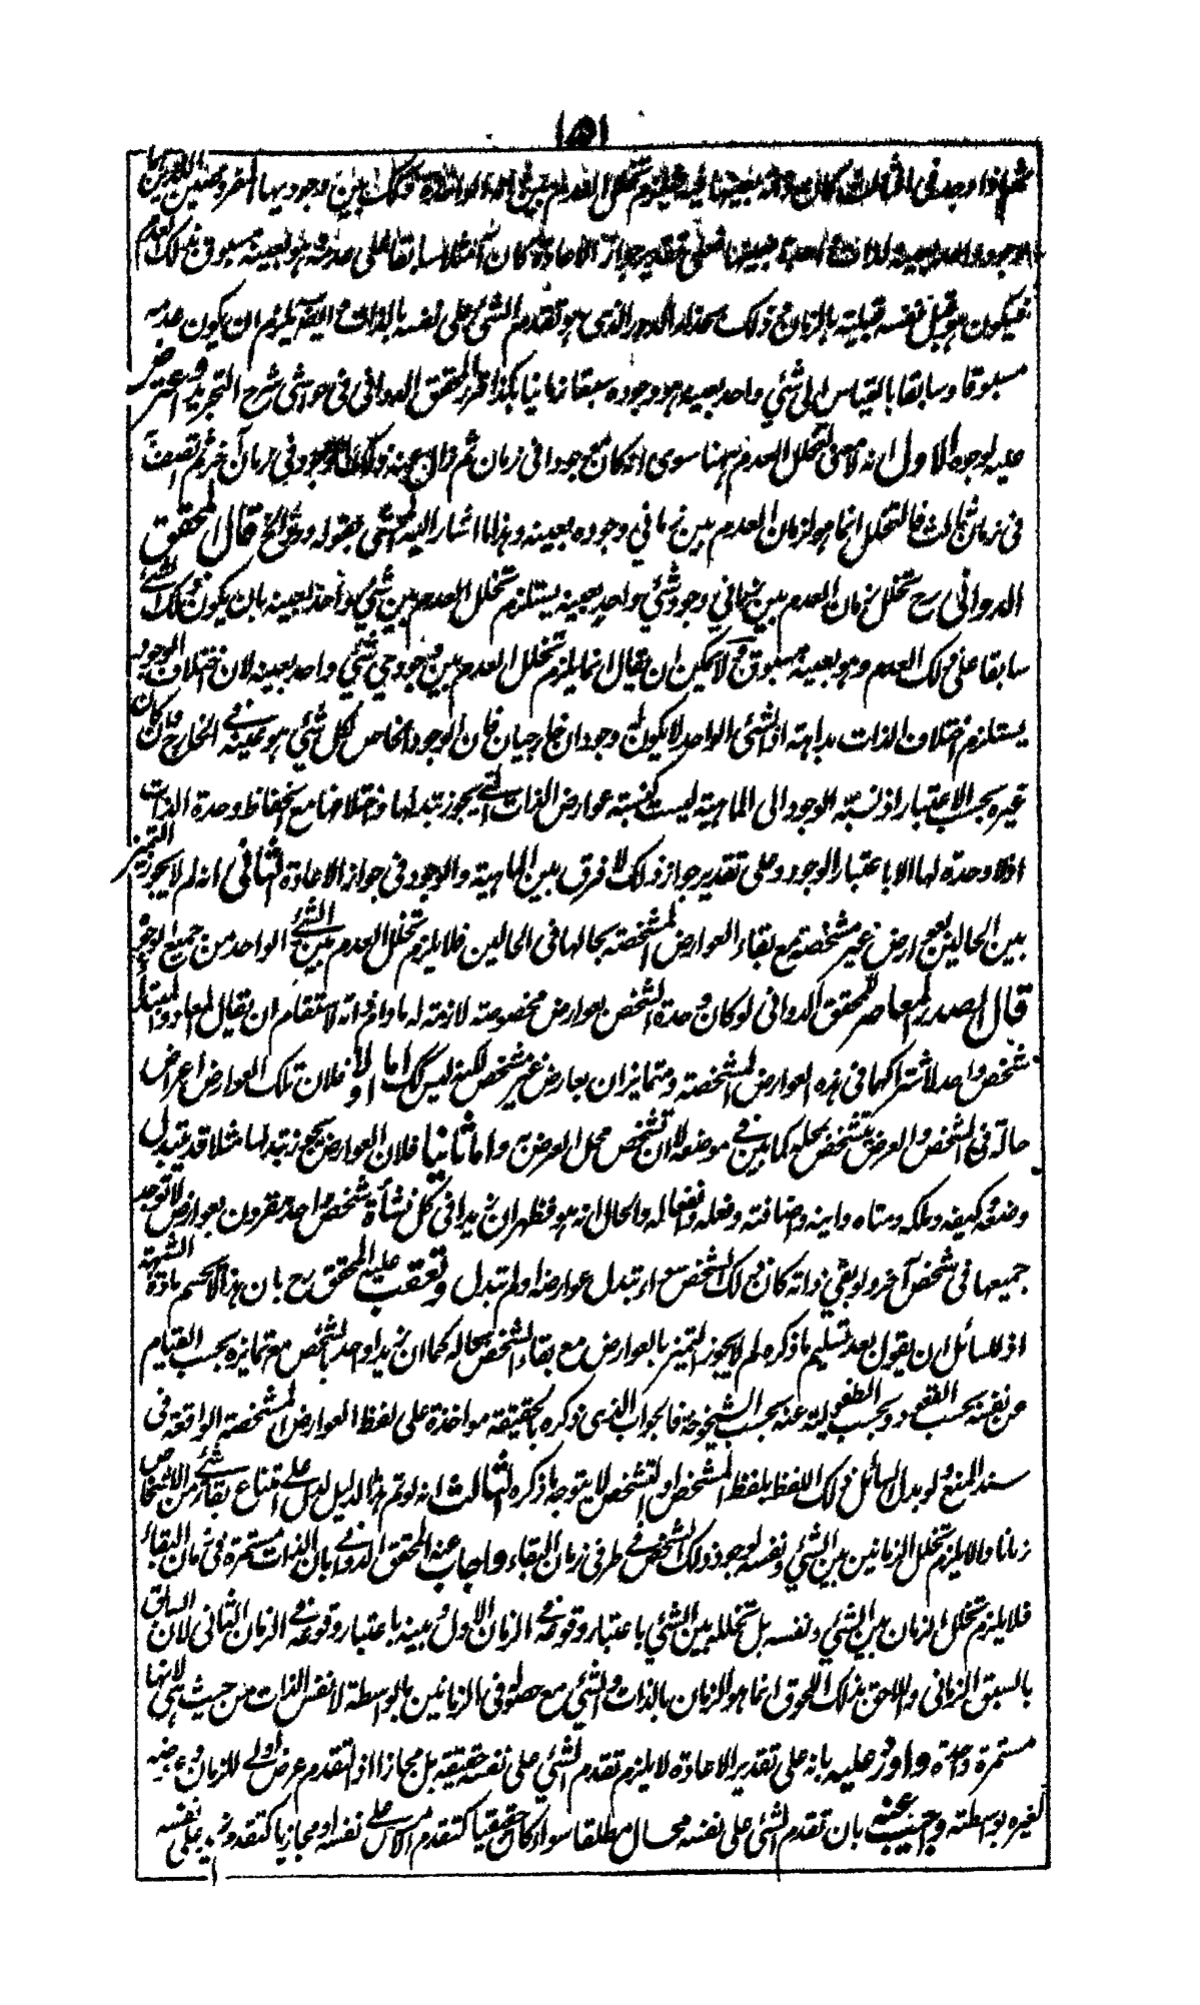 ١٥١
ثم اذا وجد فى الثالث كان هو بعينه فيلزم تخلل العدم بين
فعلى تقدير جواز الاعادة كان مثلا سابقا على عدمه وهو بعينه مسبوق بذلك العدم
فيكون هو قبل نفسه قبلية بالزمان وذلك بحذاء الدور الذى هو تقدم الشئ على نفسه بالذات وايضا يلزم ان يكون عدمه
مسبوقا وسابقا بالقياس الى شئي واحد بعينه هو وجوده سبقا زمانيا هكذا قرر المحقق الدوانى فى حواشى شرح التجريد واعترض
عليه لوجوه الاول انه لا معنى لتخلل العدم ههنا سوى انه كان موجودا فى زمان ثم زال عنه ذلك الوجود فى زمان آخر ثم اتصف
فى زمان ثالث فالتخلل انما هو لزمان العدم بين زماني وجوده بعينه وهذا ما اشار اليه المحشى بقوله وهو الخ قال المحقق
الدوانى رح تخلل زمان العدم بين زماني وجود شئي واحد بعينه يستلزم تخلل العدم بين شئي واحد بعينه بان يكون ذلك الشئ
سابقا على ذلك العدم وهو بعينه مسبوق ولا يمكن ان يقال انما يلزم تخلل العدم بين وجودي شئي واحد بعينه لان اختلاف الوجود
يستلزم اختلاف الذات بداهة اذ الشئ الواحد لا يكون له وجودان خارجيان فان الوجود الخاص لكل شئي هو عينه فى الخارج وان كان
غيره بحسب الاعتبار اذ نسبة الوجود الى الماهية ليست كنسبة عوارض الذات التى يجوز تبدلها واختلافها مع انحفاظ وحدة الذات
اذ لا وحدة لها الا باعتبار الوجود وعلى تقدير جواز ذلك لا فرق بين الماهية والوجود فى جواز الاعادة الثانى انه لم لا يجوز التميز
بين الحالين بعوارض غير مشخصة مع بقاء العوارض المشخصة بحالها فى الحالين فلا يلزم تخلل العدم بين الشئ الواحد من جميع الوجوه
قال الصدر المعاصر للمحقق الدوانى لو كان وحدة الشخص بعوارض مخصوصة لازمة له ما دام ذاته لاستقام ان يقال المعاد والمبتدأ
شخص واحد لاشتراكهما فى هذه العوارض المشخصة ومتمايزان بعارض غير مشخص لكنه ليس كك اما اولا فلان تلك العوارض اعراض
حالة فى الشخص والعرض يتشخص بمحله كما بين فى موضعه لا ان تشخص محل العرض به واما ثانيا فلان العوارض يجوز تبدلها مثلا قد يتبدل
وضعه وكيفه وملكه ومتاه واينه واضافته وفعله وانفعاله والحال انه هو فظهر ان زيدا فى كل نشأة شخص واحد مقرون بعوارض لا توجد
جميعها فى شخص آخر ولو بقي ذاته كان ذلك الشخص سواء تبدل عوارضه او لم تبدل وتعقب عليه المحقق رح بان هذا لا يحسم مادة الشبهة
اذ للسائل ان يقول بعد تسليم ما ذكره لم لا يجوز التميز بالعوارض مع بقاء الشخص بحاله كما ان زيدا واحد بالشخص مع تمايزه بحسب القيام
عن نفسه بحسب القعود وبحسب الطفولية عنه بحسب الشيخوخة فالجواب الذى ذكره بالحقيقة مواخذة على لفظ العوارض المشخصة الواقعة فى
سند المنع ولو بدل السائل ذلك اللفظ بلفظ المشخص او التشخص لا يتوجه ما ذكره الثالث انه لو تم هذا الدليل لدل على امتناع بقاء شئ من الاشخاص
زمانا والا يلزم تخلل الزمانين بين الشئي ونفسه لوجود ذلك الشخص فى طرفى زمان البقاء واجاب عنه المحقق الدوانى بان الذات مستمرة فى زمان البقاء
فلا يلزم تخلل الزمان بين الشئي ونفسه بل تخلله بين الشئي باعتبار وقوعه فى الزمان الاول وبينه باعتبار وقوعه فى الزمان الثانى لان السابق
بالسبق الزمانى واللاحق بذلك اللحوق انما هو الزمان بالذات والشئ مع حصوله فى الزمانين بالواسطة لا نفس الذات من حيث هى لانها
مستمرة واحدة واورد عليه بانه على تقدير الاعادة لا يلزم تقدم الشئي على نفسه حقيقة بل مجازا اذ التقدم عرض اولى للزمان وعرضه
لغيره بواسطته واجيب عنه بان تقدم الشئ على نفسه محال مطلقا سواء كان حقيقيا كتقدم الامس على نفسه او مجازيا كتقدم زيد على نفسه